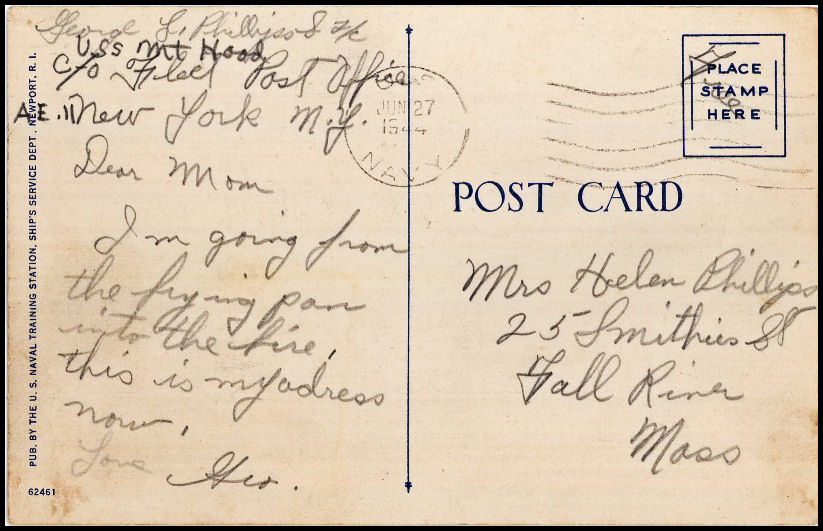 George L. Phillips S 2/c
USS Mt Hood
c/o Fleet Post Office
A.E. 11 New York N.Y.
Dear Mom
I'm going from
the frying pan
into the fire,
this is my adress
now,
Love Geo.
JUN 27
1944
NAVY
Free
PLACE
STAMP
HERE
POST CARD
Mrs Helen Phillips
25 Smithies St
Fall River
Mass
PUB. BY THE U. S. NAVAL TRAINING STATION, SHIP'S SERVICE DEPT. NEWPORT, R. I.
62461